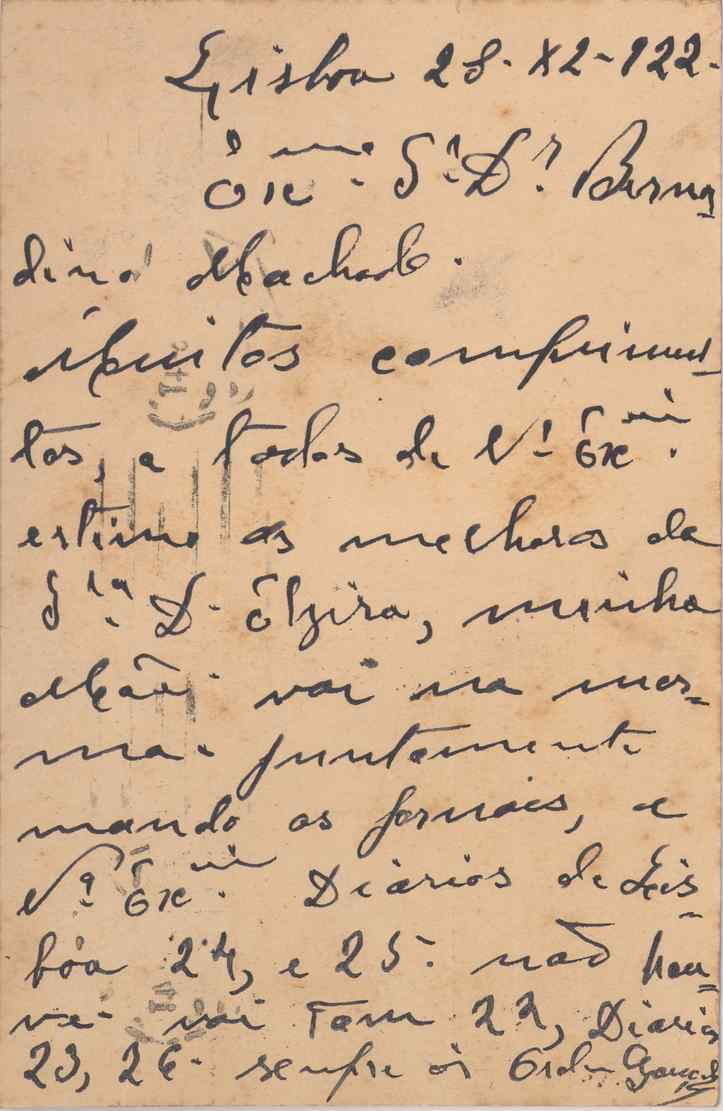 Lisboa 28-XII-922-
Exmo. Sr. Dr. Berna
dino Machado.
Muitos comprimen-
tos, a todos de V. Exa.
estimo as melhoras da
Sra. D. Elzira, minha
Mãe vai na mes-
ma. juntamente
mando os jornais, a
Va. Exa. Diarios de Lis-
bôa 24, e 25. não hou-
ve- vai tam 22, Diarios
23, 26- sempre ás Orde